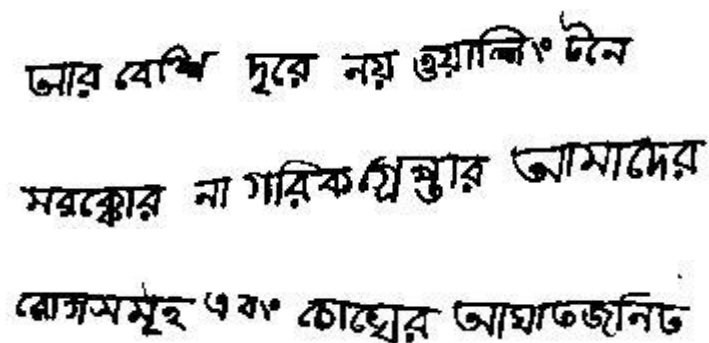 আর বেশি দূরে নয় ওয়াশিংটনে
মরক্কোর নাগরিক গ্রেপ্তার আমাদের
রোগসমূহ এবং চোখের আঘাতজনিত